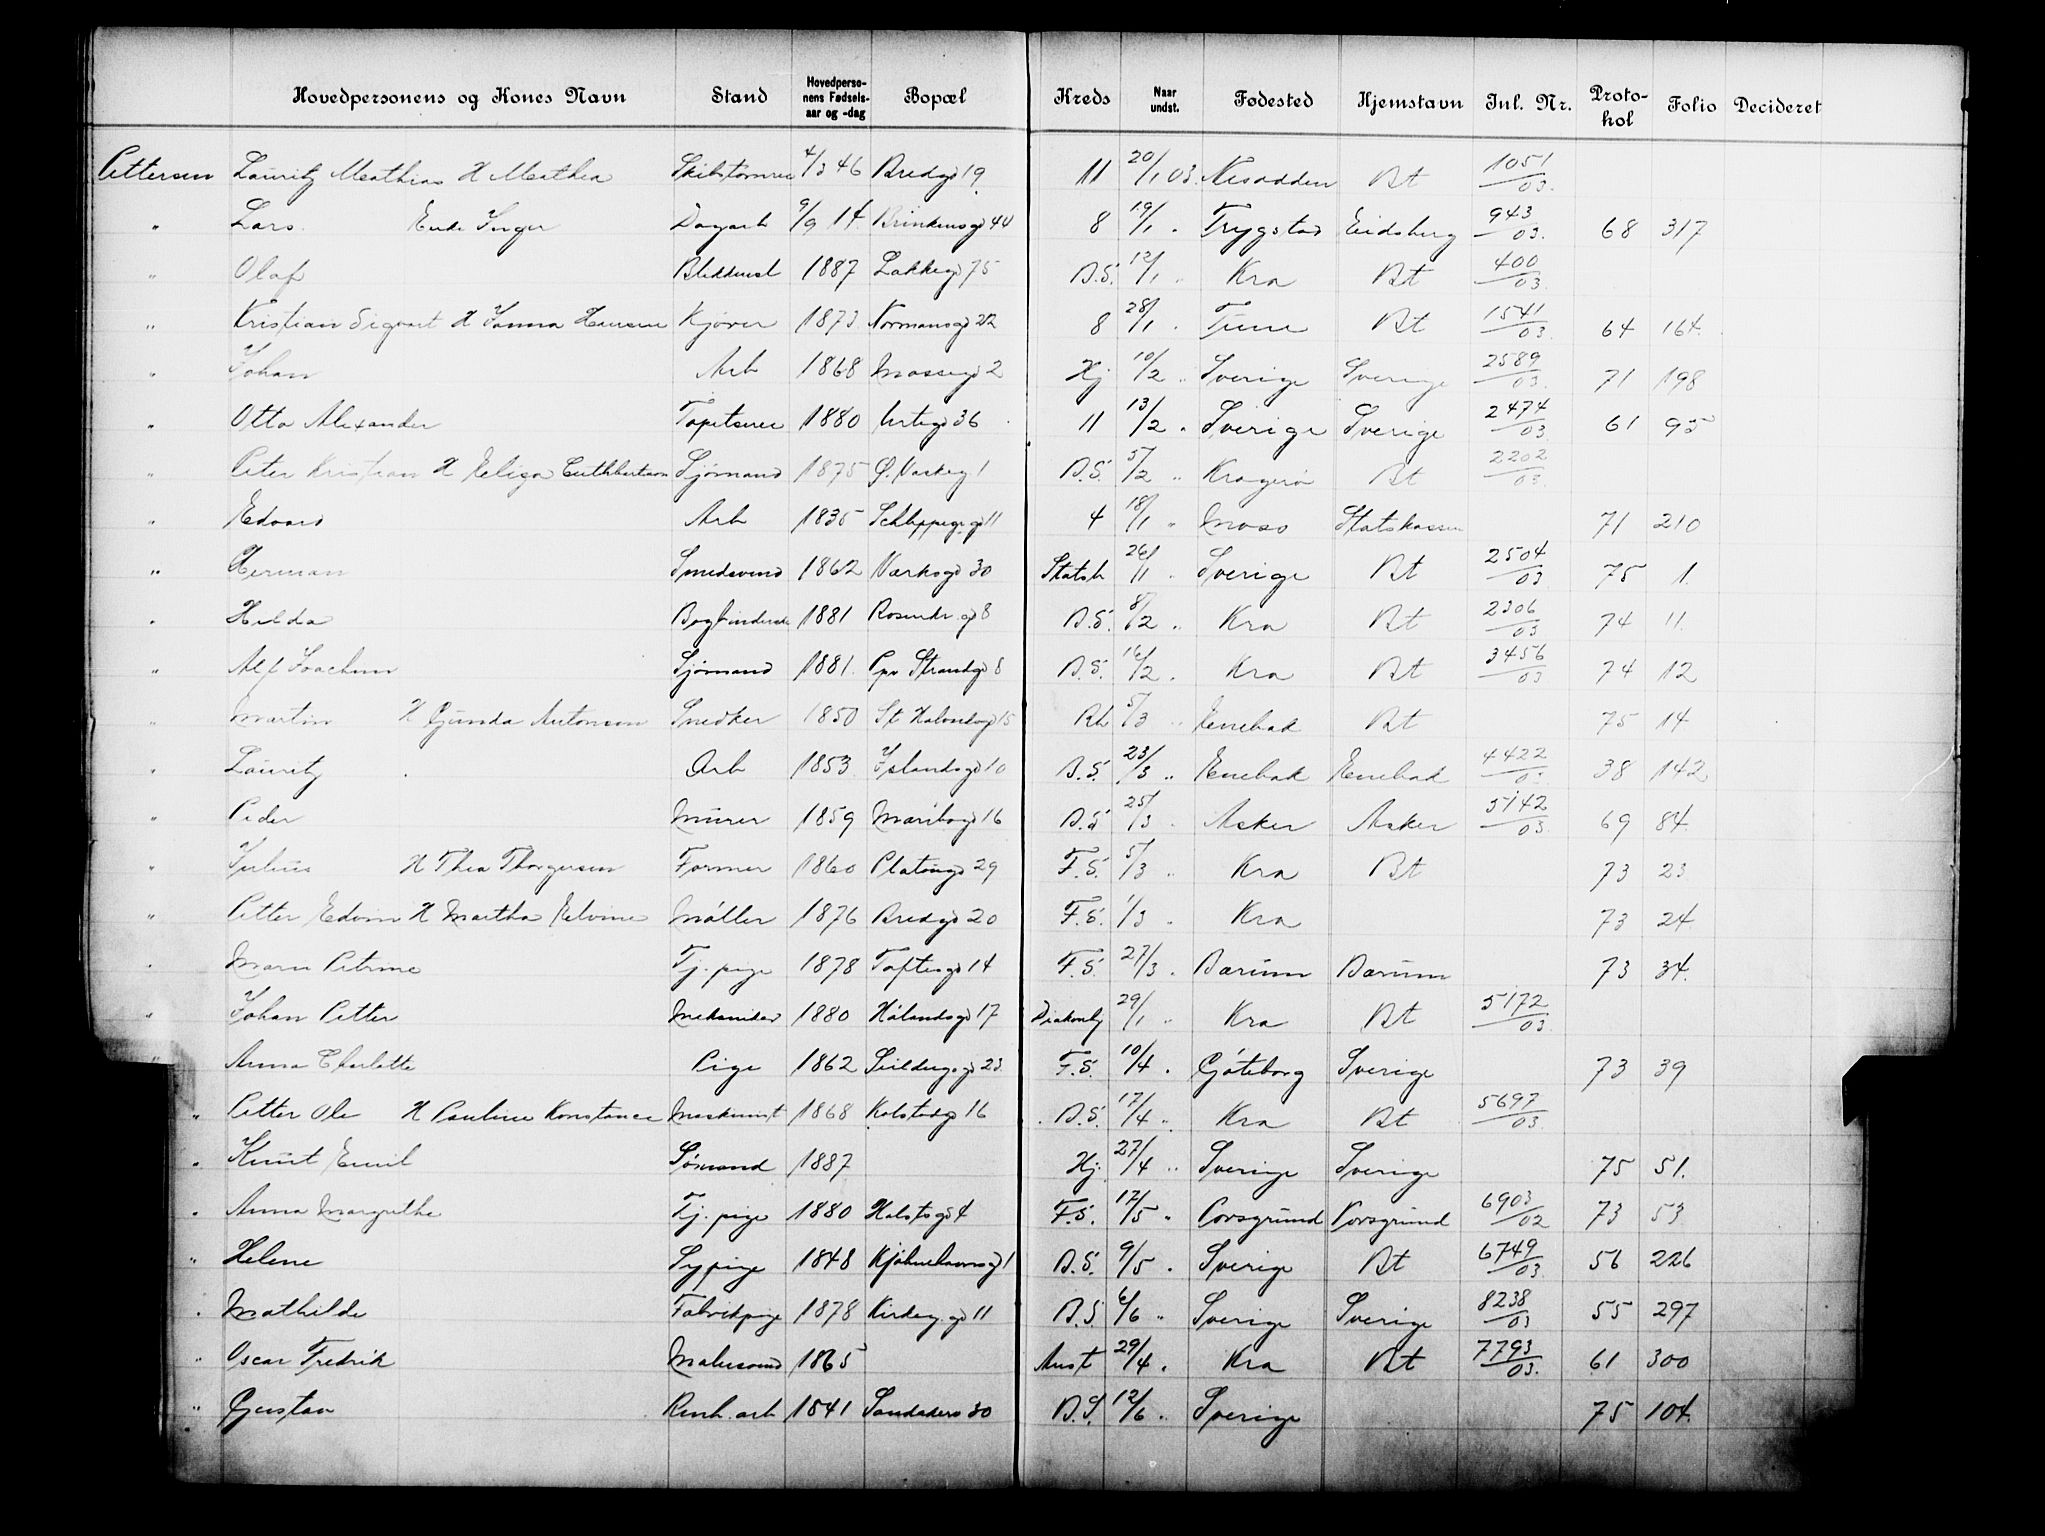 Hovedpersonens og Kones Navn Stand Hovedpersonens Fødselsaar og -dag Bopæl Kreds Naar undst. Fødested Hjemstavn Jnl. Nr. Protokol Folio Decideret
Pettersen Lauritz Mathias H Mathea Skibstømrer 4/3 46 Bredgd 19 11 20/1 03. Nesodden Bt 1051/03.
" Lars Enke Inger Dagarb 9/9 14 Brinkensgd 44 8 19/1 " Trygstad Eidsberg 943/03. 68 317
" Olaf 1887 Lakkegd 75 B.S. 12/1 " Kra Bt 400/03
" Kristian Sigvart H Hansen Kjører 1873 Normansgd 22 8 28/1 " Tune Bt 1541/03 64 164.
" Johan Arb 1868 Mossegd 2 Hj 10/2 " Sverige Sverige 2589/03. 71 198
" Otto Alexander Tapetserer 1880 Urtegd 36 11 13/2 " Sverige Sverige 2474/03 61 95
" Peter Kristian H Eliza Cuthbertson Sjømand 1875 Ø. Vaskeg 1 B.S. 5/2 " Kragerø Bt 2202/03.
" Edvard Arb 1835 Schleppegr.gd 11 4 18/1 " Moss Statskassen 71 210
" Herman Smedsvend 1862 Værksgd 30 Statsb 26/11 " Sverige Bt 2504/03 75 1.
" Hilda 1881 Rosenkr.gd 8 B.S. 8/2 " Kra Bt 2306/03 74 11.
" Alf Joachim Sjømand 1881. Strandgd 8 B.S. 16/2 " Kra Bt 3456/03 74 12
" Martin H Gunda Antonsen Snedker 1850 15 Rh 5/3 " Enebak Bt 75 14
" Lauritz Arb 1853 Islandsgd 10 B.S. 23/3 " Enebak Enebak 4422/03 38 142
" Peder Murer 1859 Maribogd 16 B.S 25/3 " Asker Asker 5142/03. 69 84
" Julius H Thea Thorgersen Former 1860 Platousgd 29 F.S. 5/3 " Kra Bt 73 23
" Petter Edvin H Martha Elvine Møller 1876 Bredgd 20 F.S. 1/3 " Kra 73 24
" Maren Petrine Tj. pige 1878 Toftesgd 14 F.S. 27/3 " Bærum Bærum 73 34.
" Johan Petter Mekaniker 1880 Hålandsgd 17 Diakonhj 29/1 " Kra Bt 5172/03
" Anna Charlotte Pige 1862 Seilduggd 23 F.S. 10/4 " Göteborg Sverige 73 39
" Petter Ole H Pauline Konstance Maskinist 1868 Kolstadgd 16 B.S. 17/4 " Kra Bt 5697/03.
" Knut Emil Sømand 1887 Hj. 27/4 " Sverige Sverige 75 51.
" Anna Margrethe Tj. pige 1880 Holstsgd 4 F.S. 17/5 " Porsgrund Porsgrund 6903/02 73 53
" Helene Sypige 1848 Kjøbenhavnsgd 1 B.S. 9/5 " Sverige Bt 6749/03. 56 226
" Mathilde Fabrikpige 1878 Kirkeg.gd 11 B.S. 6/6 " Sverige Sverige 8238/03 55 297
" Oscar Fredrik Malersvend 1865 Anst 29/4 " Kra Bt 7793/03. 61 300
" Gustav Renh. arb 1841 Sandakerv 30 B.S. 12/6 " Sverige 75 104.